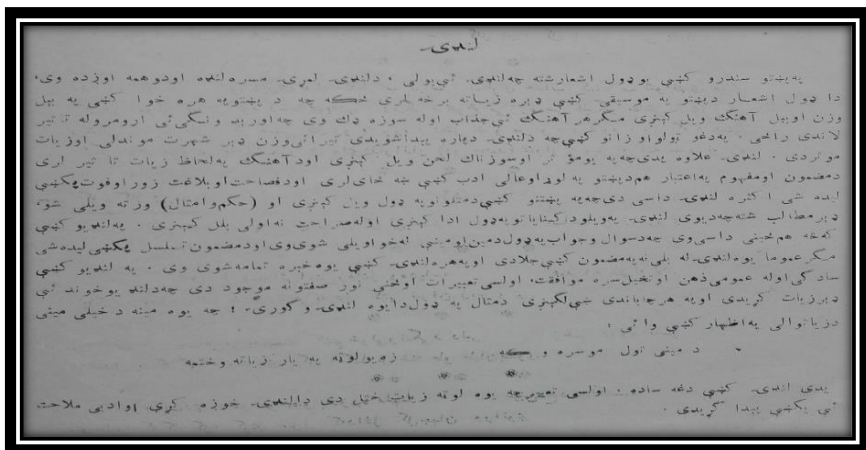 لنډۍ
په پښتو سندرو کښې یو ډول اشعار شته چه لنډۍ ئې بولی ، د لنډۍ لمړۍ مسره لنډه او دوهمه اوږده وی،
دا ډول اشعار د پښتو په موسیقی کښې ډېره زیاته برخه لری ځکه چه د پښتو په هره خوا کښې په بېل
وزن او بېل آهنګ ویل کېږی مګر هر آهنګ ئې جذاب او له سوزه ډک وی چه اورېدونکی ئې ارومرو له تاثیر
لاندی راځی . په دغو ټولو اوزانو کښې چه د لنډۍ دپاره پیدا شویدی تیرائی وزن ډېر شهرت موندلی او زیات
مؤثر دی . لنډۍ علاوه پدی چه په یو مؤثر او سوزناک لحن ویل کېږی او د آهنګ په لحاظ زیات تاثیر لری
د مضمون او مفهوم په اعتبار هم د پښتو په لوړ او عالی ادب کښې ښه ځای لری او د فصاحت او بلاغت زور او قوت پکښې
لیده شی اکثره لنډۍ داسی دی چه په پښتو کښې د متلو په ډول ویل کېږی او (حکم و امثال) ورته ویلی شو،
ډېر مطالب شته چه د یوی لنډۍ په ویلو د کنایاتو په ډول ادا کېږی او له صراحت نه اولی بلل کېږی . په لنډیو کښې
که څه هم ځینی داسی وی چه د سوال و جواب په ډول د مین او مینی له خوا ویلی شوی وی او د مضمون تسلسل پکښې لیده شی
مګر عموماً یوه لنډۍ له بلی نه په مضمون کښې جلا دی او په هره لنډۍ کښې یوه خبره تمامه شوی وی . په لنډیو کښې
سادګی او له عمومی ذهن او تخیل سره موافقت، اولسی تعبیرات او ځنی نور صفتونه موجود دی چه د لنډیو خوند ئې
ډېر زیات کړیدی او په هر چا باندی ښې لګېږی د مثال په ډول دا یوه لنډۍ وګورئ ! چه یوه مینه د خپلی مینی
د زیاتوالی په اظهار کښې وائی :
د مینی تول مو سره وکه زه یو لوټه په یار زیاته وختمه
پدی لنډۍ کښې دغه ساده ، اولسی تعبیر چه یوه لوټه زیات ختل دی دا لنډۍ خوږه کړی او ادبی ملاحت
ئې پکښې پیدا کړیدی .